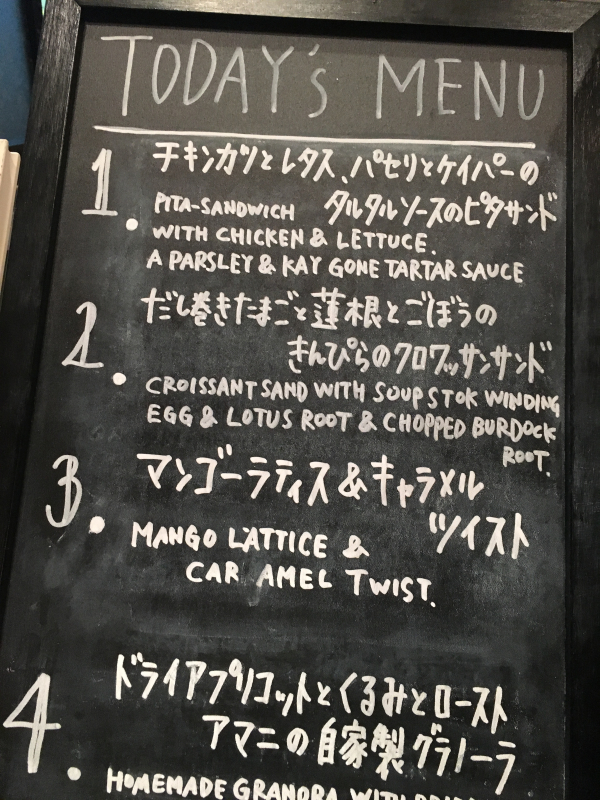 TODAY's MENU
1. チキンカツとレタス、パセリとケイパーの
タルタルソースのピタサンド
PITA-SANDWICH
WITH CHICKEN & LETTUCE.
A PARSLEY & KAY GONE TARTAR SAUCE
2. だし巻きたまごと蓮根とごぼうの
きんぴらのクロワッサンサンド
CROISSANT SAND WITH SOUP STOK WINDING
EGG & LOTUS ROOT & CHOPPED BURDOCK
ROOT.
3. マンゴーラティス&キャラメル
ツイスト
MANGO LATTICE &
CAR AMEL TWIST.
4. ドライアプリコットとくるみとロースト
アマニの自家製グラノーラ
HOMEMADE GRANORA WITH